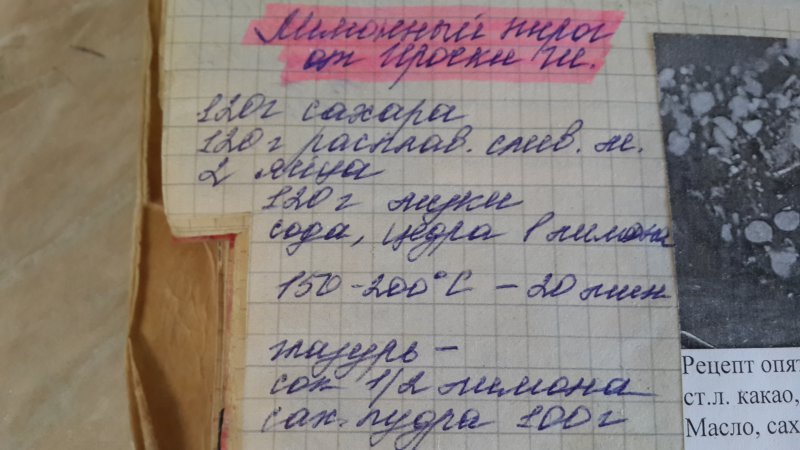 Лимонный пирог
от Ироски Ш.
120г сахара
120г расплав. слив. м.
2 яйца
120г муки
сода, цедра 1 лимона
150-200°С - 20 мин
глазурь -
сок 1/2 лимона
сах. пудра 100г
Рецепт опят
ст.л. какао,
Масло, сах